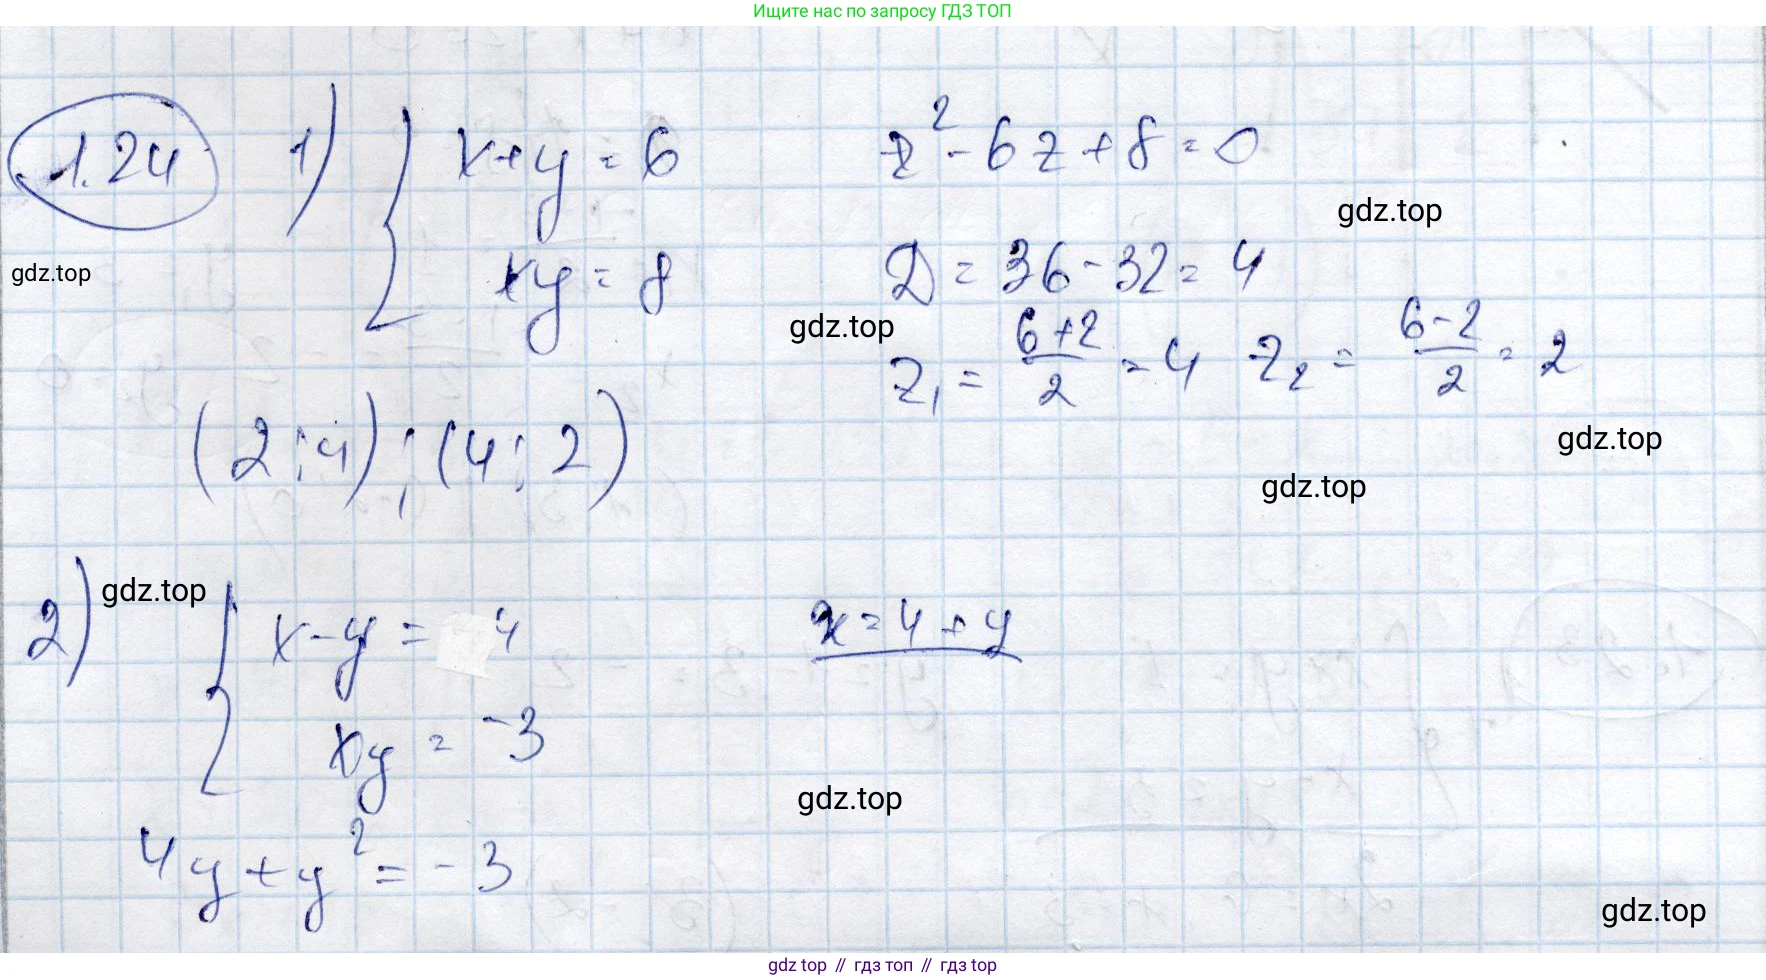 Ищите нас по запросу ГДЗ ТОП
1.24 1) { x+y = 6
z² - 6z + 8 = 0
gdz.top
xy = 8
D = 36 - 32 = 4
gdz.top
gdz.top
z₁ = (6+2)/2 = 4 z₂ = (6-2)/2 = 2
(2;4); (4;2)
gdz.top
gdz.top
2) gdz.top
{ x-y = 4
x = 4 + y
xy = -3
gdz.top
4y + y² = -3
gdz.top
gdz top // гдз топ // гдз top